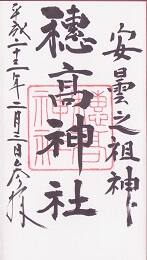 安曇之祖神
穂髙神社
平成二十二年二月三日参拝